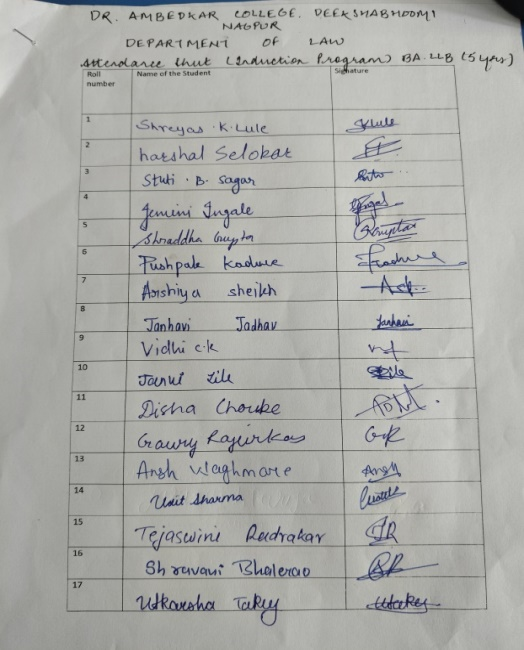 DR. AMBEDKAR COLLEGE. DEEKSHABHOOMI
NAGPUR
DEPARTMENT OF LAW
Attendance Shut (Induction Program) BA.LLB (5 yrs)
Roll number Name of the Student Signature
1 Shreyas K. Lule SKLule
2 harshal Selokar
3 Stuti . B. Sagar
4 Jemini Ingale
5 Shraddha Gupta Gupta
6 Pushpak Kadwe
7 Arshiya sheikh
8 Janhavi Jadhav Janhavi
9 Vidhi c.k
10 Janvi
11 Disha Chouke
12 Gaury Rajurkar GR
13 Ansh Waghmare Ansh
14 Sharma
15 Tejaswini Rudrakar TR
16 Shravani Bhalerao
17 Utkarsha Takey Utakey